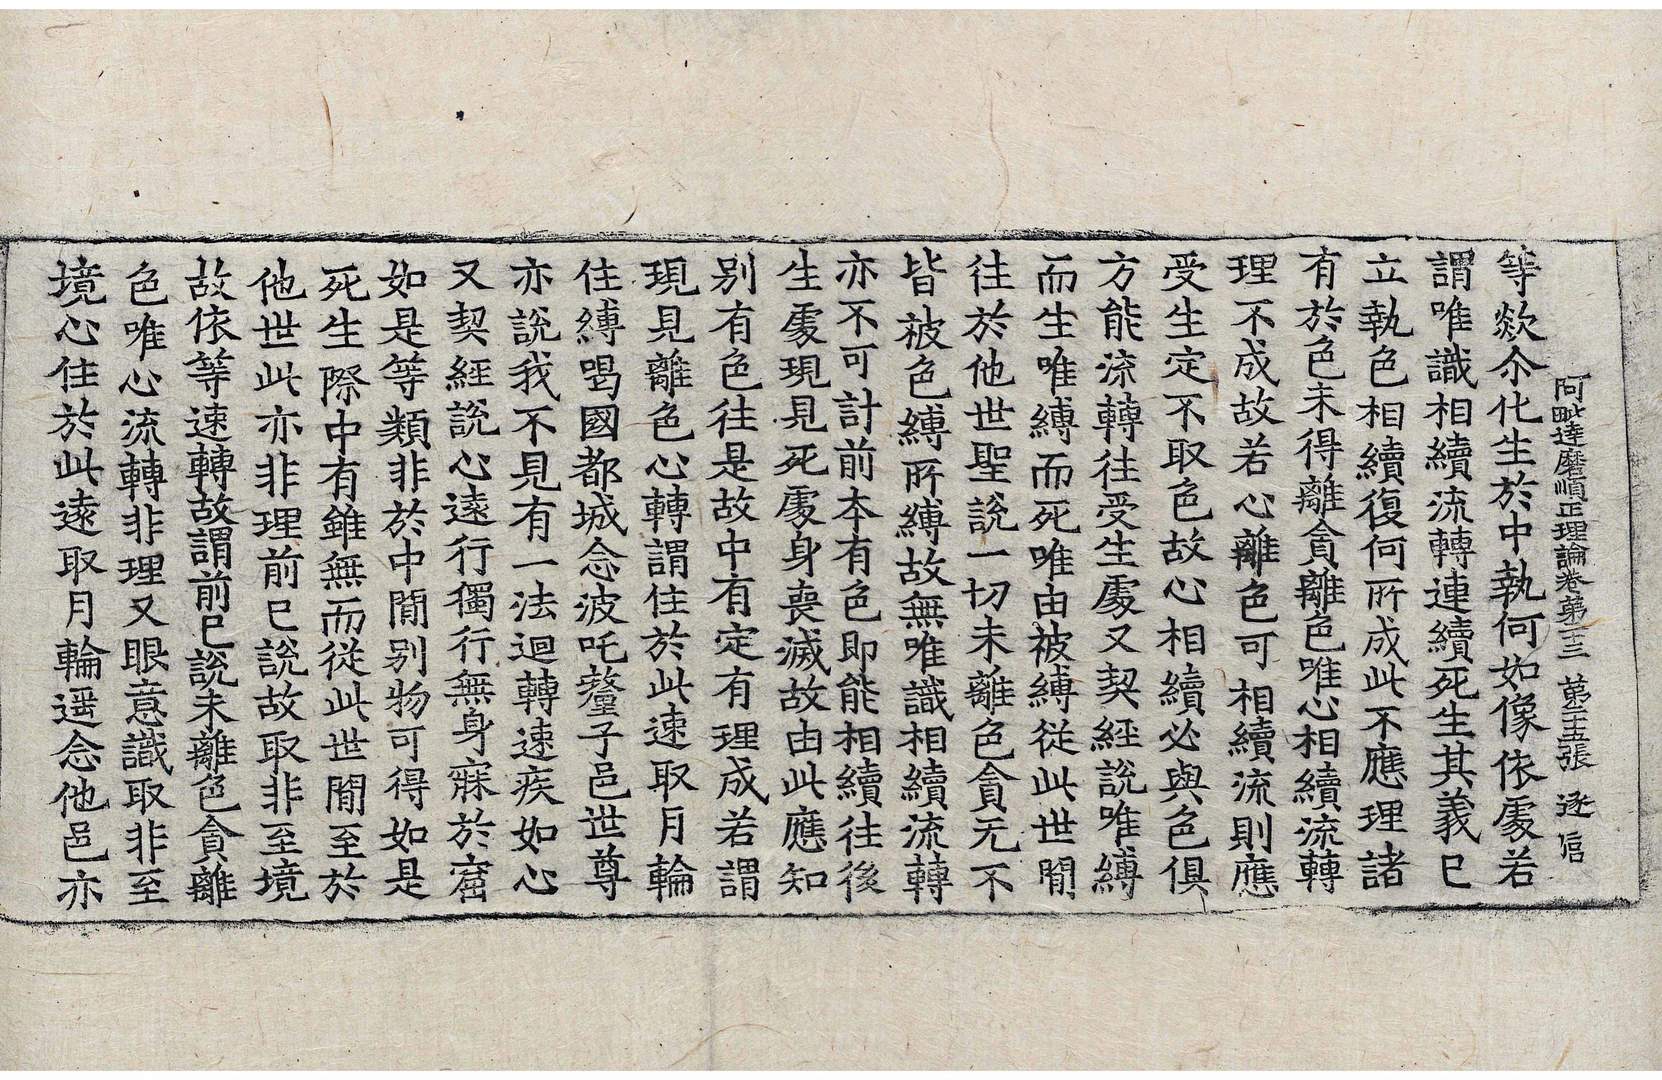 阿毗達磨順正理論卷第二三 第二十五張 逐信
等歘尒化生於中執何如像依處若
謂唯識相續流轉連續死生其義已
立執色相續復何所成此不應理諸
有於色未得離貪離色唯心相續流轉
理不成故若心離色可相續流則應
受生定不取色故心相續必與色俱
方能流轉往受生處又契經說唯縛
而生唯縛而死唯由被縛從此世閒
往於他世聖說一切未離色貪无不
皆被色縛所縛故無唯識相續流轉
亦不可計前本有色即能相續往後
生處現見死處身喪滅故由此應知
別有色往是故中有定有理成若謂
現見離色心轉謂住於此速取月輪
住縛喝國都城念波吒釐子邑世尊
亦說我不見有一法迴轉速疾如心
又契經說心遠行獨行無身寐於窟
如是等類非於中閒別物可得如是
死生際中有雖無而從此世閒至於
他世此亦非理前已說故取非至境
故依等速轉故謂前已說未離色貪離
色唯心流轉非理又眼意識取非至
境心住於此遠取月輪遥念他邑亦